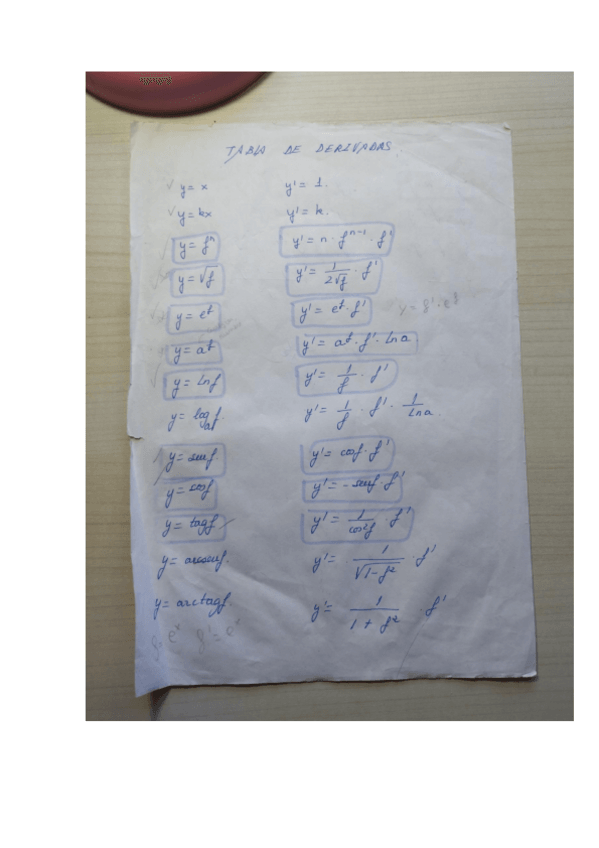 TABLA DE DERIVADAS
y = x y' = 1.
y = kx y' = k.
y = fⁿ y' = n · fⁿ⁻¹ · f'
y = √f y' = 1/(2√f) · f'
y = e^f y' = e^f · f' y = f' · e^f
y = a^f y' = a^f · f' · ln a.
y = ln f y' = 1/f · f'
y = log f y' = 1/f · f' · 1/ln a.
y = sen f y' = cos f · f'
y = cos f y' = - sen f · f'
y = tag f y' = 1/cos² f · f'
y = arcsen f. y' = 1/√(1-f²) · f'
y = arctag f. y' = 1/(1 + f²) · f'
e^x f' = e^x